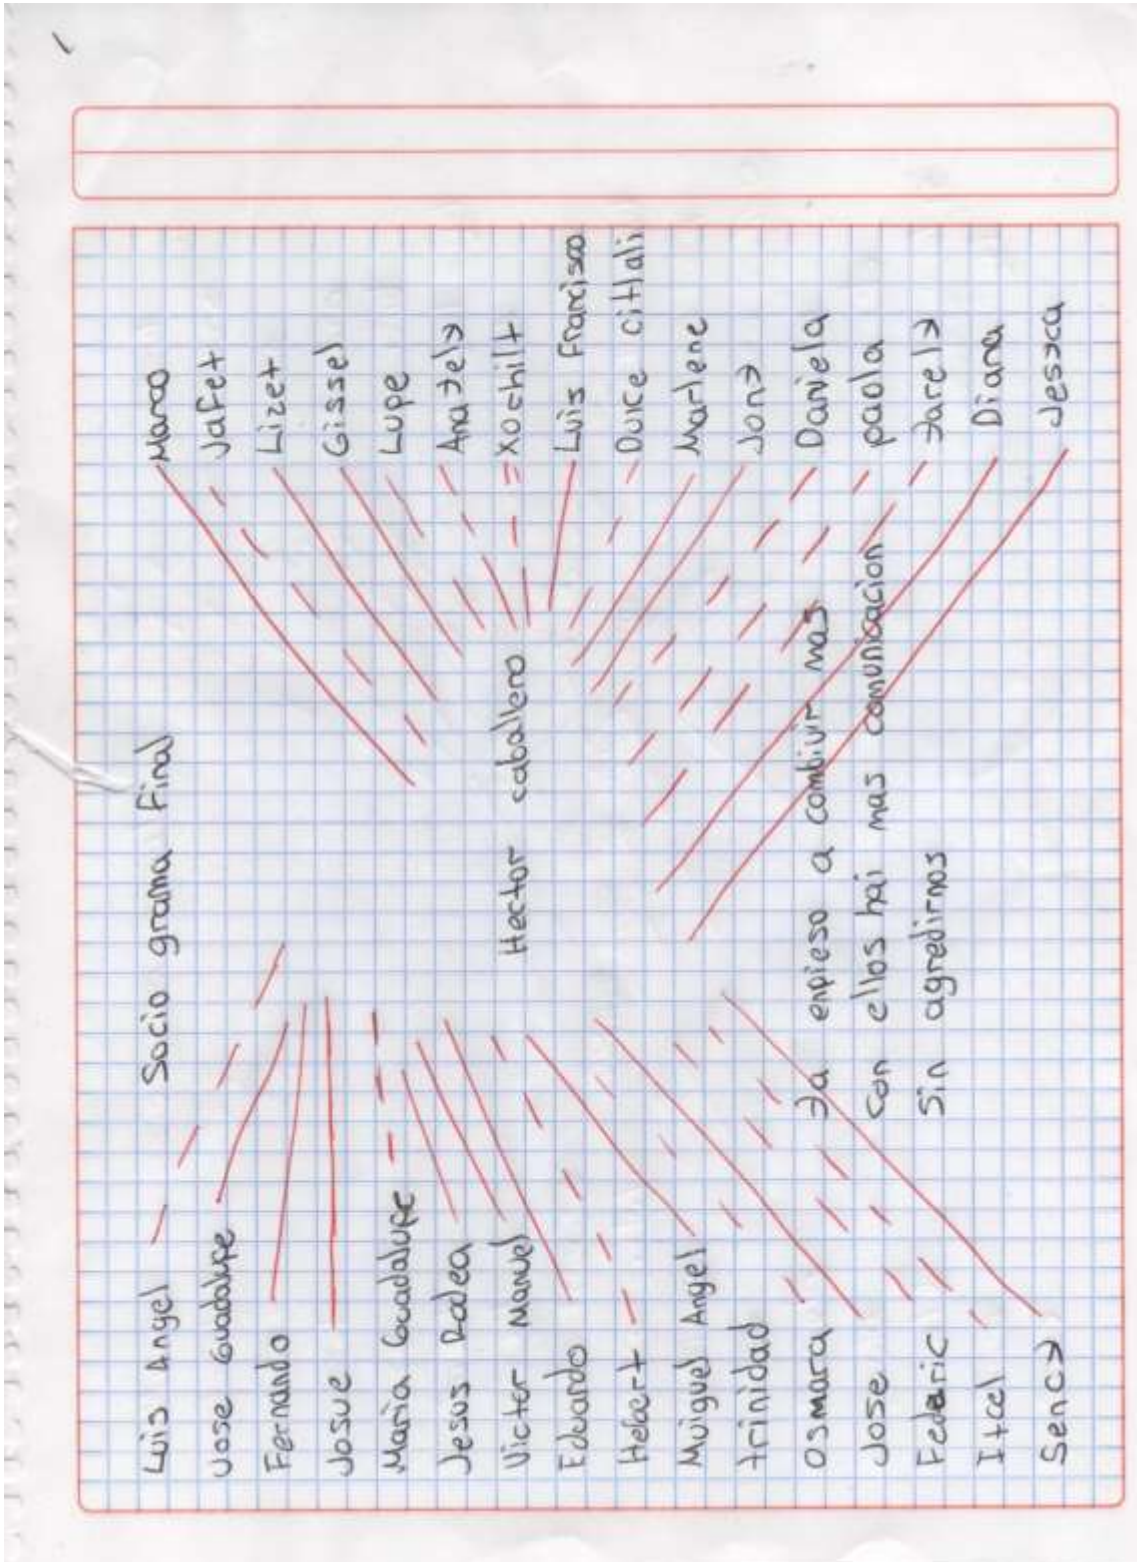 Socio grama Final
Luis Angel
Jose Guadalupe
Fernando
Josue
Maria Guadalupe
Jesus Rodea
Victor Manuel
Eduardo
Hebert
Muiguel Angel
trinidad
Osmara
Jose
Federic
Itcel
Sency
Hector caballero
Marco
Jafet
Lizet
Gissel
Lupe
Anayely
Xochilt
Luis Francisco
Dulce citlali
Marlene
Jony
Daniela
paola
yarely
Diana
Jesyca
ya enpieso a combivir mas
con ellos hai mas comunicacion
Sin agredirnos